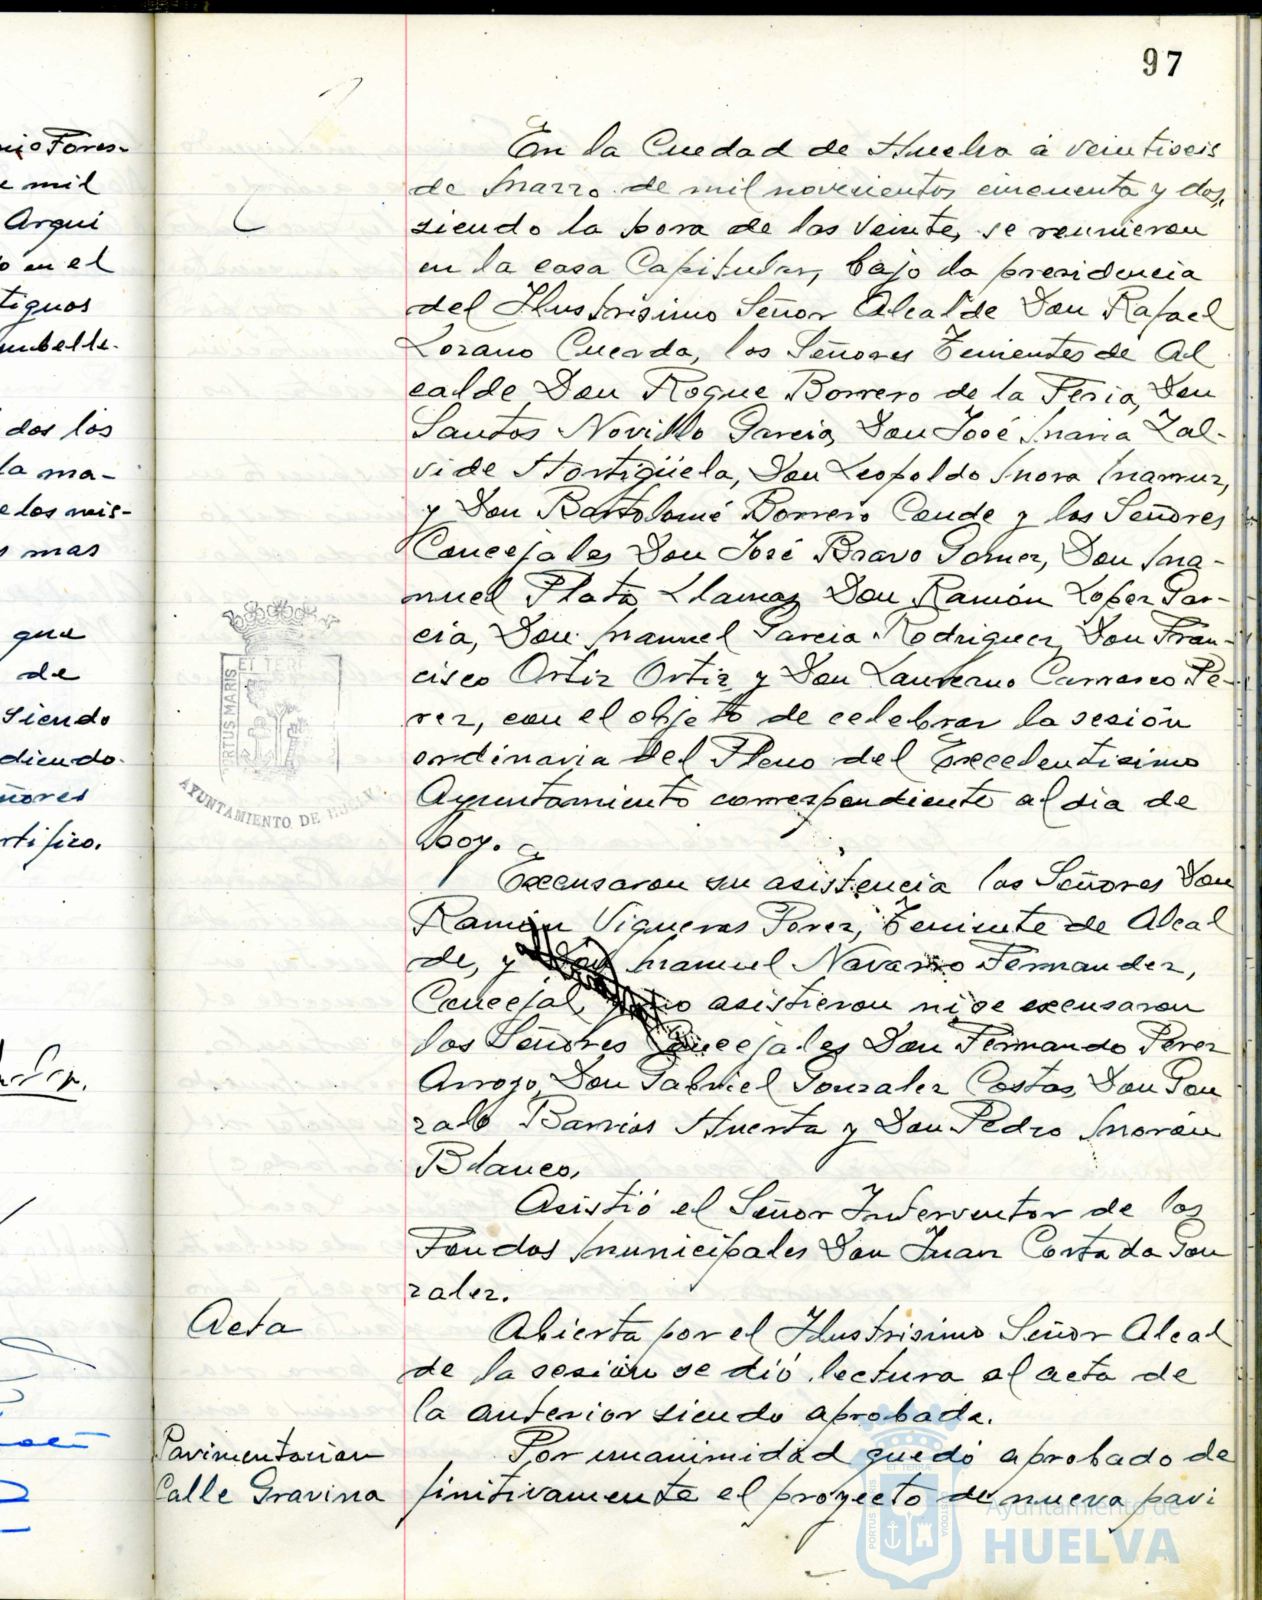 97
nio Fores-
e mil
Arqui
o en el
tiguos
umbelle-
dos los
la ma-
e los mis-
s mas
que
de
siendo
diendo
ñores
rtifico.
En la Ciudad de Huelva á veintiseis
de Marzo de mil novecientos cincuenta y dos,
siendo la hora de las veinte, se reunieron
en la casa Capitular, bajo la presidencia
del Ilustrisimo Señor Alcalde Don Rafael
Lozano Cuerda, los Señores Tenientes de Al
calde Don Roque Borrero de la Feria, Don
Santos Novillo Garcia, Don José Maria Zal-
vide Hortigüela, Don Leopoldo Mora Marruz,
y Don Bartolomé Borrero Conde y los Señores
Concejales Don José Bravo Gomez, Don Ma-
nuel Plata Llamas Don Ramón Lopez Gar-
cia, Don Manuel Garcia Rodriguez, Don Fran-
cisco Ortiz Ortiz y Don Laureano Carrasco Pe-
rez, con el objeto de celebrar la sesión
ordinaria del Pleno del Excelentisimo
Ayuntamiento correspondiente al dia de
hoy.
PORTUS MARIS
ET TERR
AYUNTAMIENTO DE HUELV
Excusaron su asistencia los Señores Don
Ramón Vigueras Perez, Teniente de Alcal
de, y Don Manuel Navarro Fernandez,
Concejal, y no asistieron ni se excusaron
los Señores Concejales Don Fernando Perez
Arroyo, Don Gabriel Gonzalez Costas, Don Gon
zalo Barrios Huerta y Don Pedro Morón
Blanco.
Asistió el Señor Interventor de los
Fondos Municipales Don Juan Cortada Gon
zalez.
Acta
Abierta por el Ilustrisimo Señor Alcal
de la sesión se dió lectura al acta de
la anterior siendo aprobada.
Pavimentacion
Calle Gravina
Por unanimidad quedó aprobado de
finitivamente el proyecto de nueva pavi
PORTUS MARIS
ET TERRA
CUSTODIA
Ayuntamiento de
HUELVA